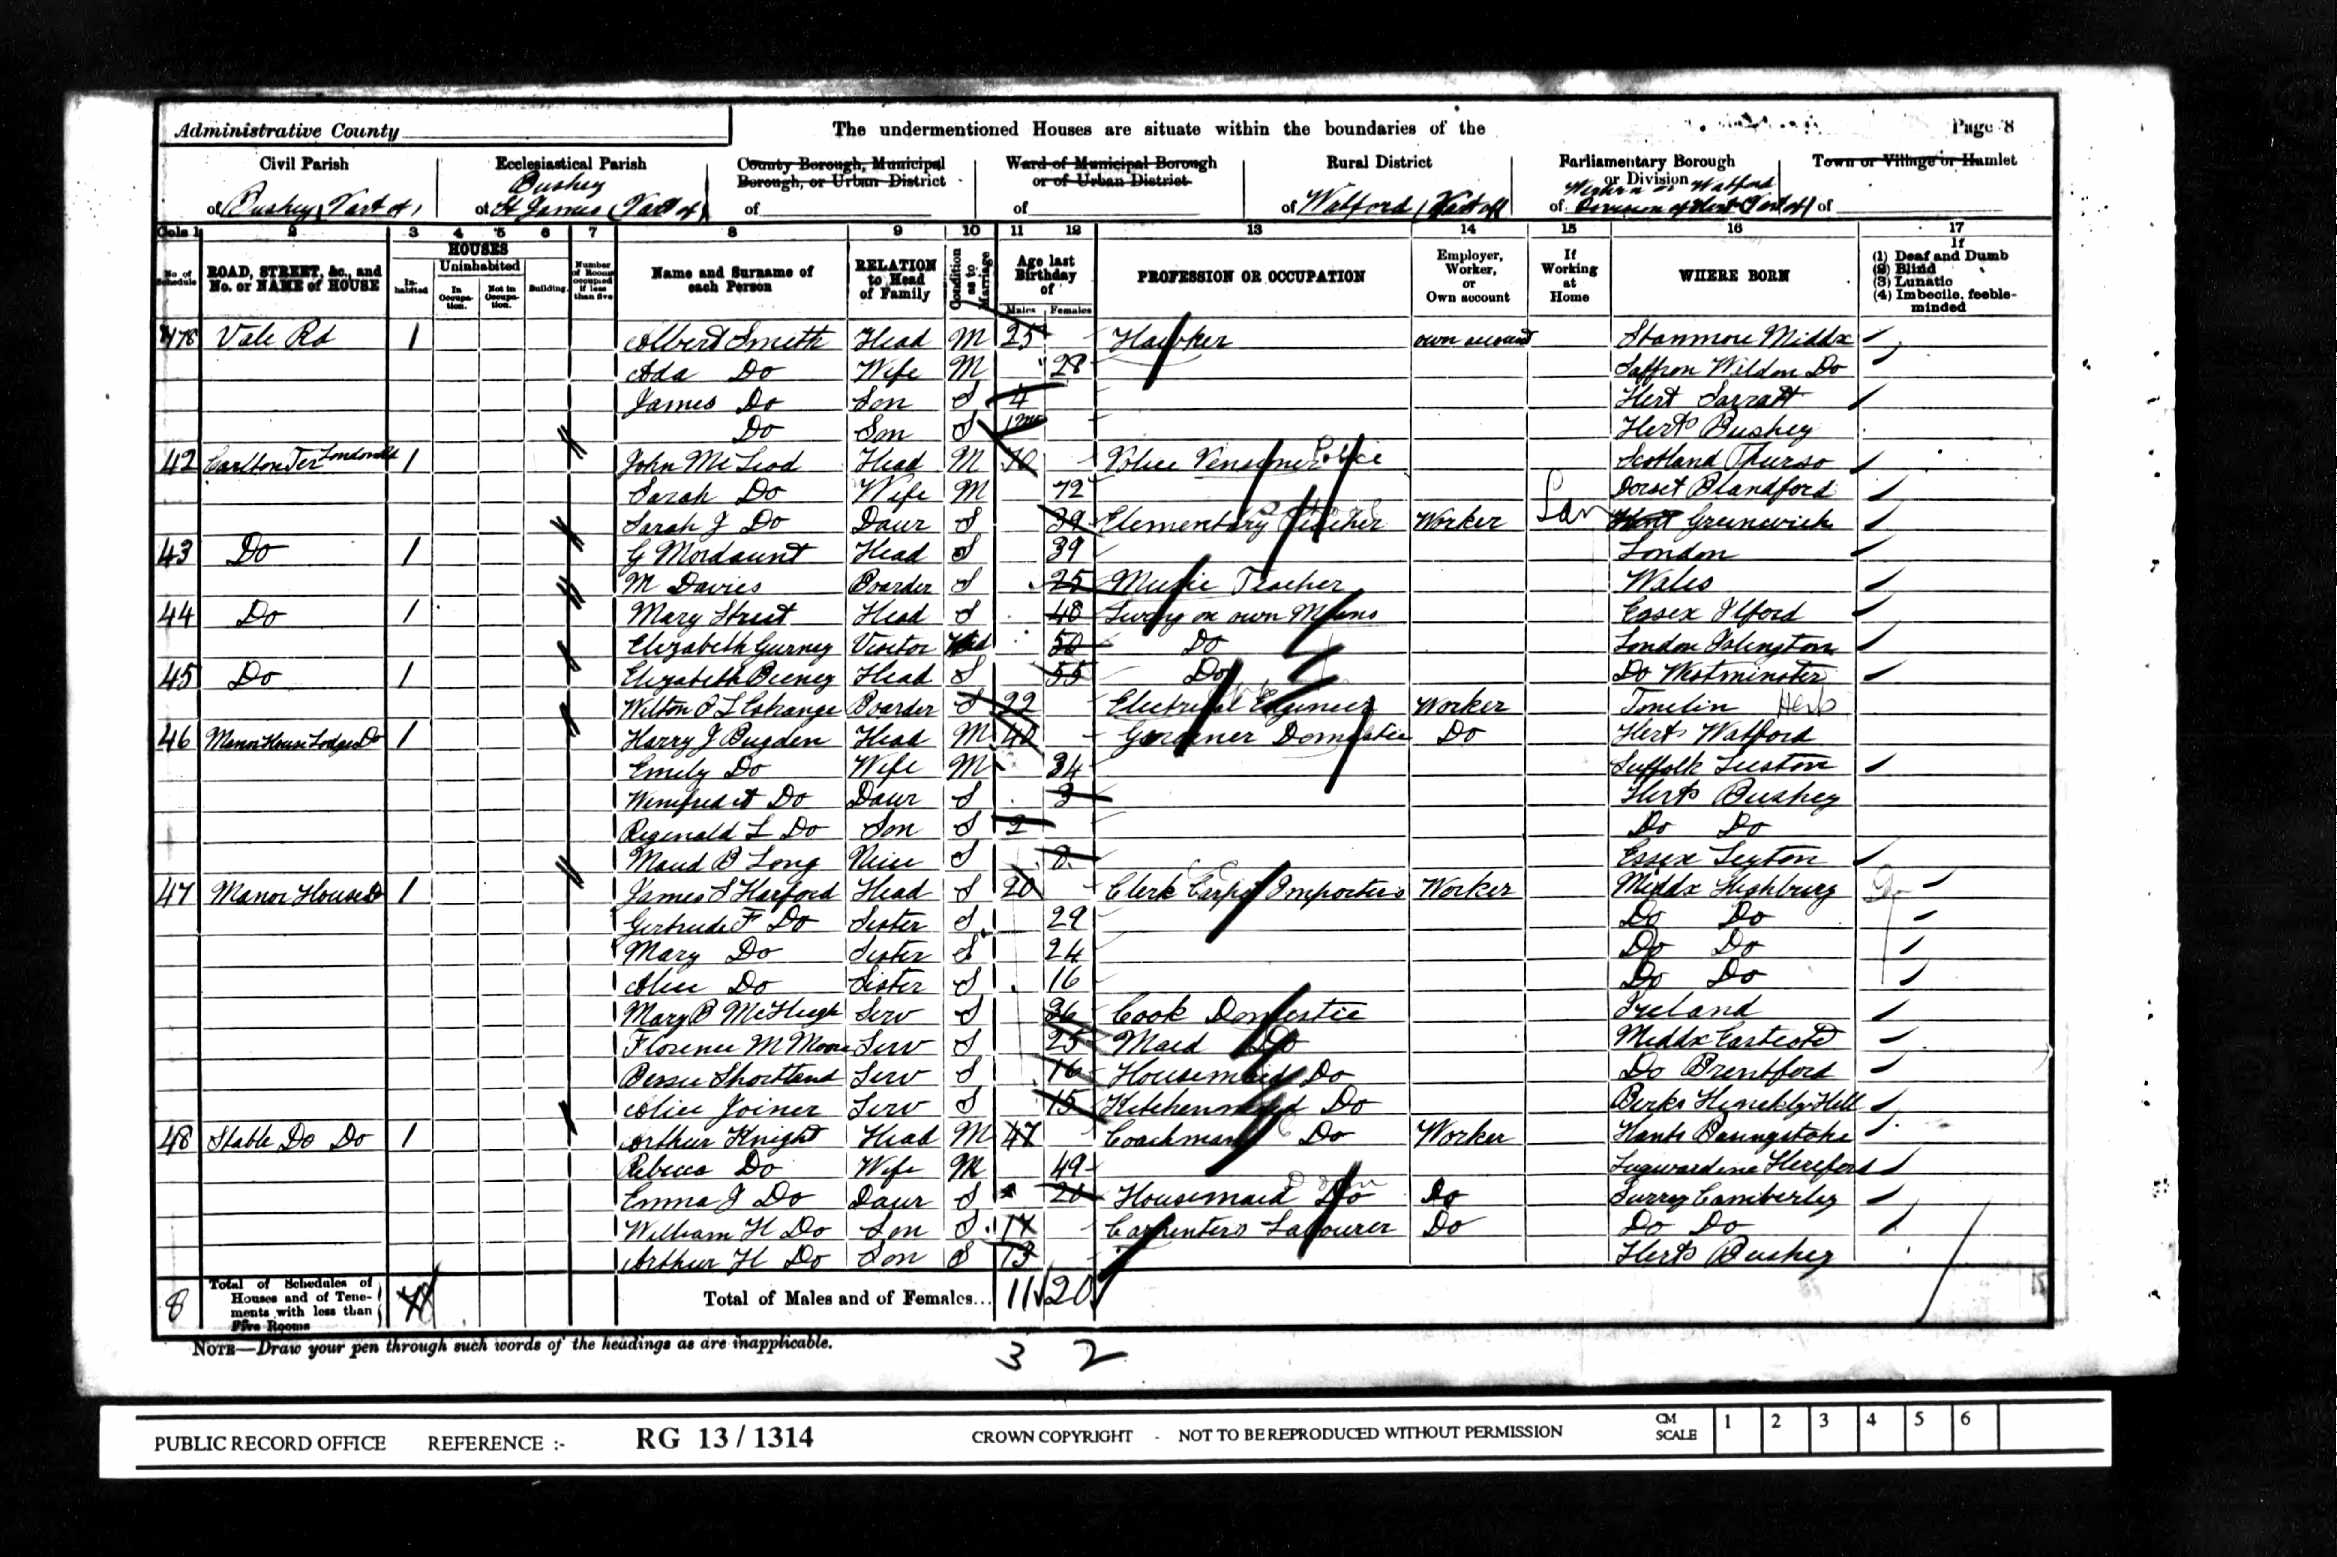 Administrative County
The undermentioned Houses are situate within the boundaries of the
Page 8
Civil Parish
of Bushey (Part of)
Ecclesiastical Parish
Bushey
of St James (Part of)
County Borough, Municipal
Borough, or Urban District
of
Ward of Municipal Borough
or of Urban District
of
Rural District
of Watford (Part of)
Parliamentary Borough
or Division
Western or Watford
of Division of Hert (Part of)
Town or Village or Hamlet
of
Cols 1 2 3 4 5 6 7 8 9 10 11 12 13 14 15 16 17
No. of Schedule
ROAD, STREET, &c., and
No. or NAME of HOUSE
HOUSES
In-habited
Uninhabited
In Occupa-tion.
Not in Occupa-tion.
Building.
Number of Rooms occupied if less than five
Name and Surname of
each Person
RELATION
to Head
of Family
Condition as to Marriage
Age last
Birthday
of
Males Females
PROFESSION OR OCCUPATION
Employer,
Worker,
or
Own account
If
Working
at
Home
WHERE BORN
If
(1) Deaf and Dumb
(2) Blind
(3) Lunatic
(4) Imbecile, feeble-
minded
478 Vale Rd 1 Albert Smith Head M 25 Hawker own account Stanmore Middx
Ada Do Wife M 28 Saffron Wildon Do
James Do Son S 4 Hert Sarratt
Do Son S Herts Bushey
42 Carlton Ter London Rd 1 John McLeod Head M 70 Police Pensioner Police Scotland Thurso
Sarah Do Wife M 72 Dorset Blandford
Sarah J Do Daur S 39 Elementary Teacher Worker Greenwich
43 Do 1 G Mordaunt Head S 39 London
M Davies Boarder S 25 Music Teacher Wales
44 Do 1 Mary Street Head S 48 Living on own Means Essex Ilford
Elizabeth Gurney Visitor Wid 50 Do London Islington
45 Do 1 Elizabeth Head S 55 Do Do Westminster
Wilton P L Estrange Boarder S 22 Electrical Engineer Worker Herts
46 Manor House Lodge Do 1 Harry J Bugden Head M 40 Gardener Domestic Do Herts Watford
Emily Do Wife M 34 Suffolk
Winifred Do Daur S 3 Herts Bushey
Reginald L Do Son S 2 Do Do
Maud B Long Neice S 8 Essex Leyton
47 Manor House Do 1 James S Harford Head S 20 Clerk Carpet Importers Worker Middx Highbury
Gertrude F Do Sister S 29 Do Do
Mary Do Sister S 24 Do Do
Alice Do Sister S 16 Do Do
Mary B McHugh Serv S 36 Cook Domestic Ireland
Florence M Moore Serv S 25 Maid Do Middx Eastcote
Bessie Shortland Serv S 16 Housemaid Do Do Brentford
Alice Joiner Serv S 15 Kitchenmaid Do Berks
48 Stable Do Do 1 Arthur Knight Head M 47 Coachman Do Worker Hants Basingstoke
Rebecca Do Wife M 49 Lugwardine Hereford
Emma J Do Daur S 20 Housemaid Do Do Surrey Camberley
William H Do Son S 17 Carpenters Labourer Do Do Do
Arthur H Do Son S 13 Herts Bushey
8
Total of Schedules of
Houses and of Tene-
ments with less than
Five Rooms
Total of Males and of Females... 11 20
NOTE—Draw your pen through such words of the headings as are inapplicable.
3 2
PUBLIC RECORD OFFICE REFERENCE :- RG 13 / 1314 CROWN COPYRIGHT - NOT TO BE REPRODUCED WITHOUT PERMISSION CM SCALE 1 2 3 4 5 6